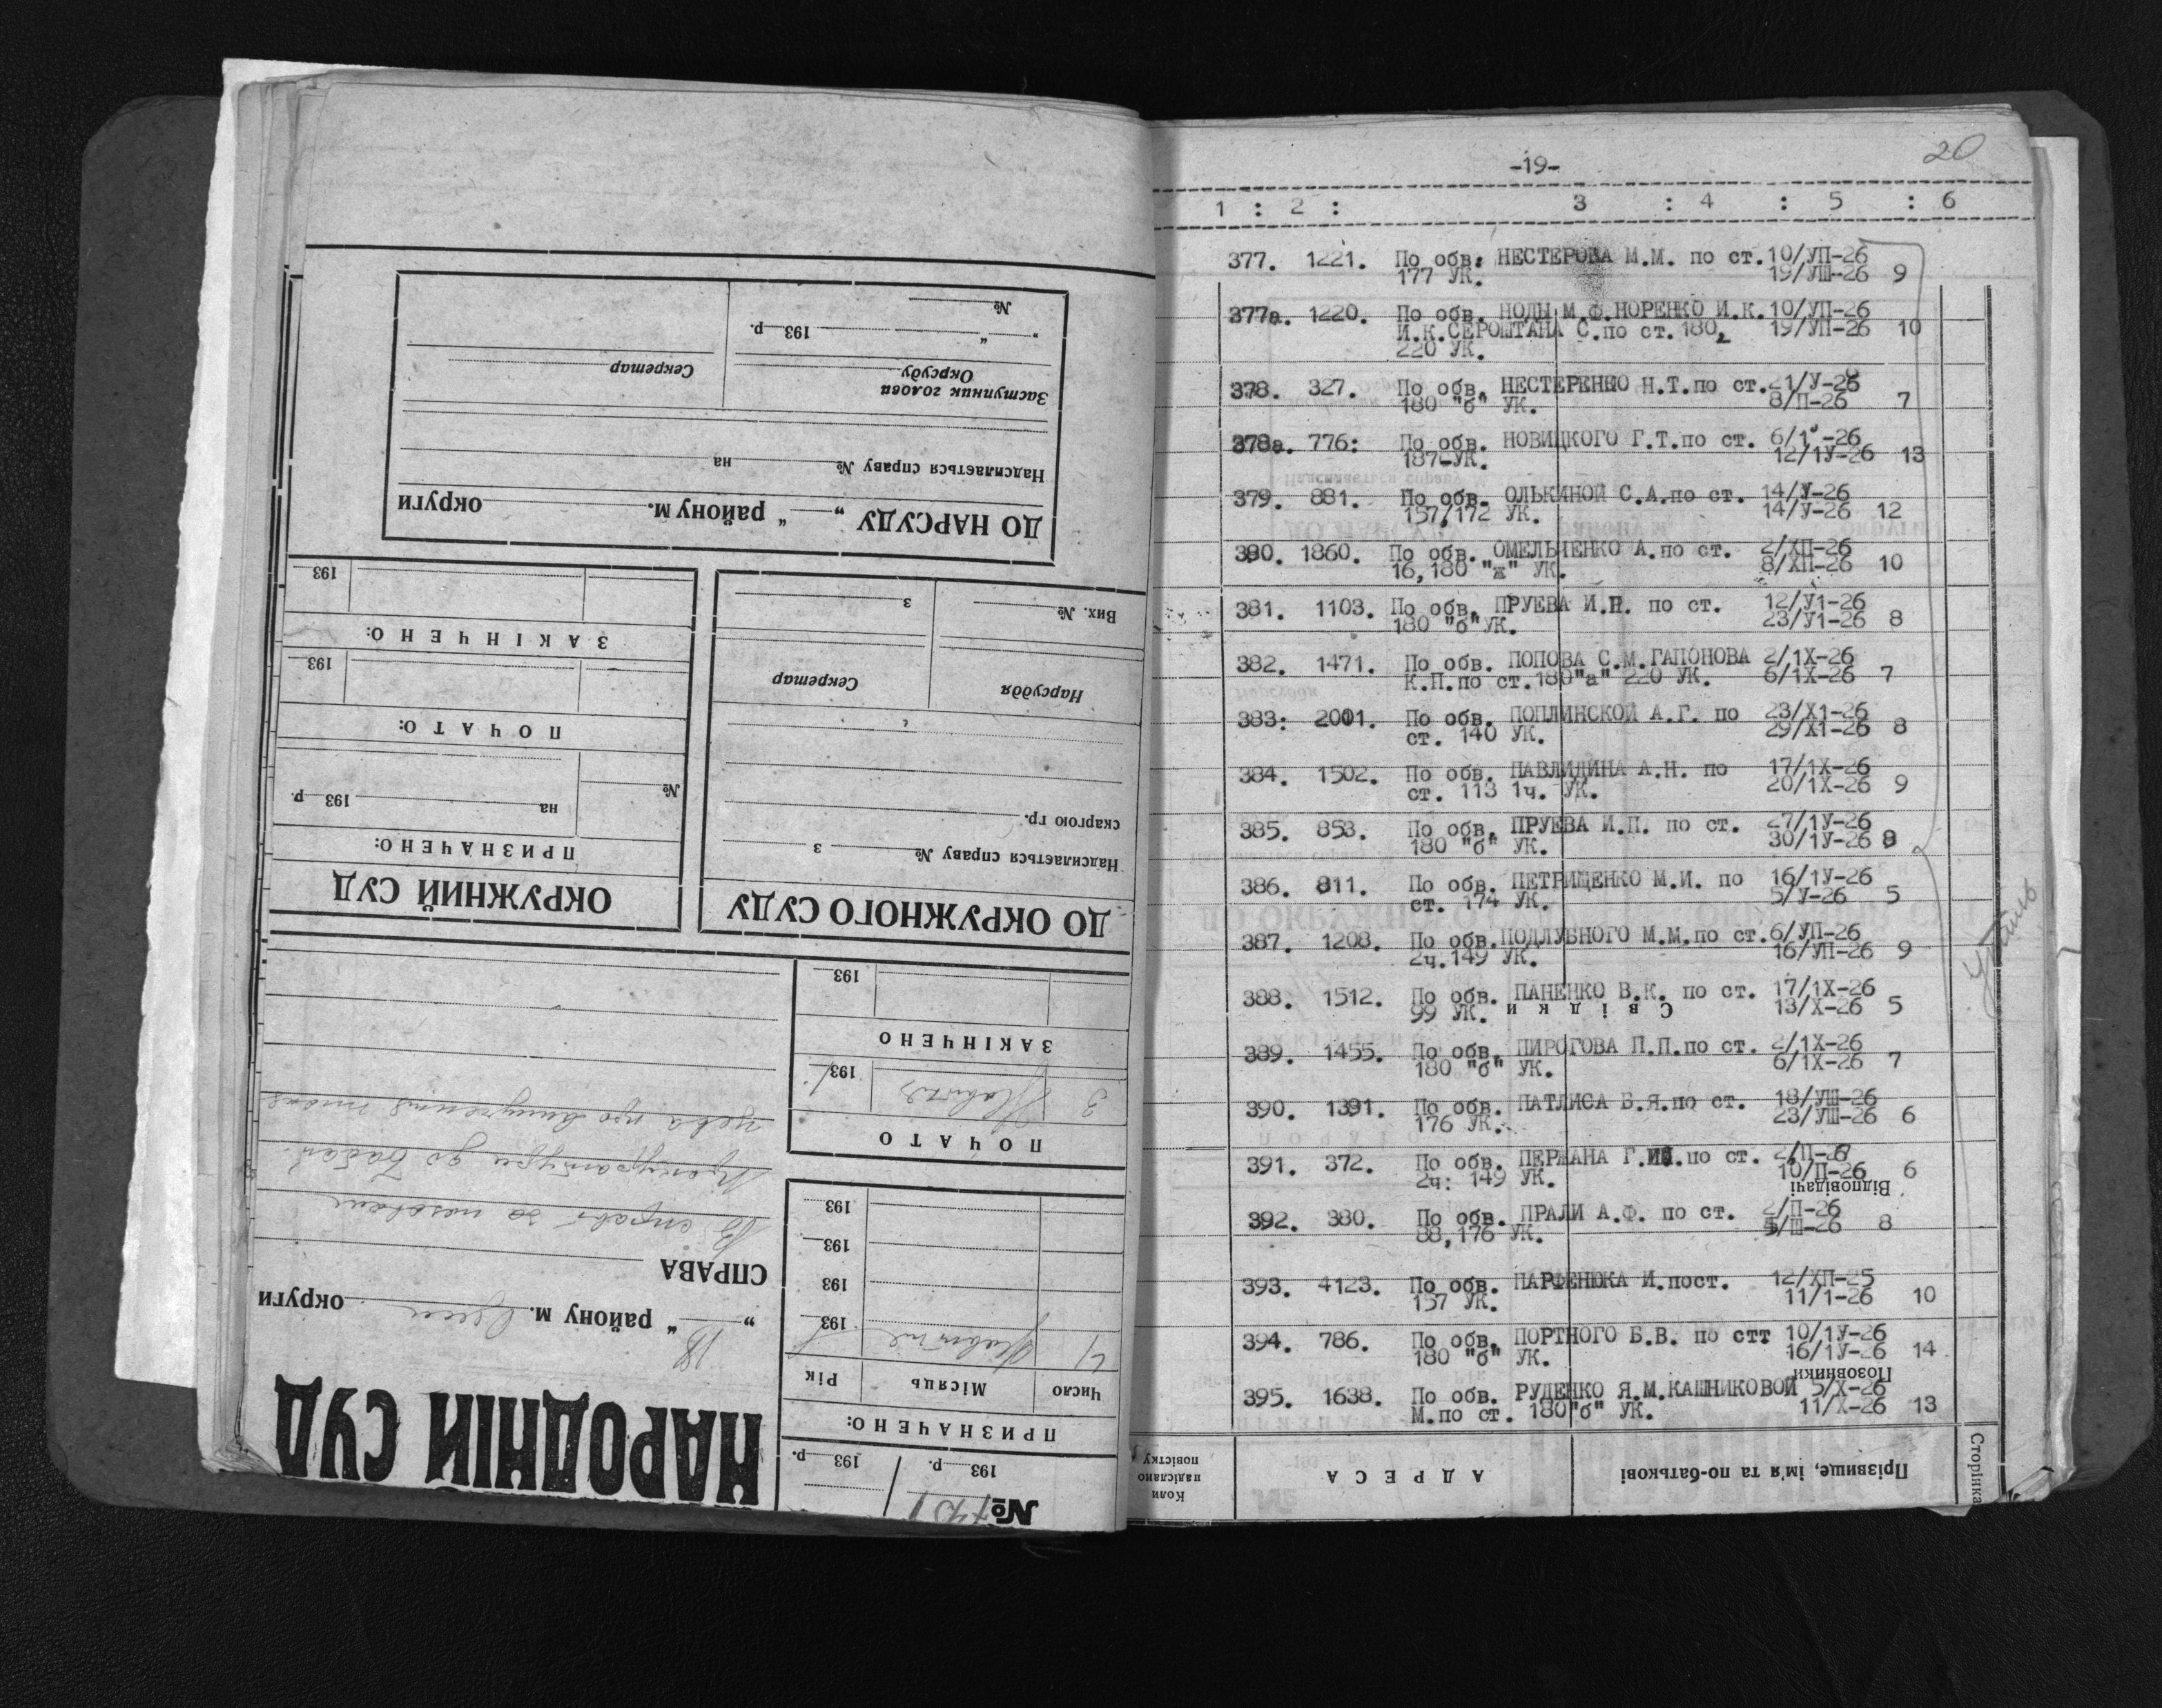 -19-
20
1 : 2 : 3 : 4 : 5 : 6
377. 1221. По обв. НЕСТЕРОВА М.М. по ст. 10/УП-26
177 УК. 19/УШ-26 9
377а. 1220. По обв. НОДЫ М.Ф.НОРЕНКО И.К. 10/УП-26
И.К.СЕРОШТАНА С.по ст.180, 19/УП-26 10
220 УК.
378. 327. По обв. НЕСТЕРЕНКО Н.Т.по ст. 21/У-26
180 "б" УК. 8/П-26 7
378а. 776: По обв. НОВИЦКОГО Г.Т.по ст. 6/1 -26
187-УК. 12/1У-26 13
379. 881. По обв. ОЛЬКИНОЙ С.А.по ст. 14/У-26
157/172 УК. 14/У-26 12
380. 1860. По обв. ОМЕЛЬЧЕНКО А.по ст. 2/ХП-26
16,180 "ж" УК. 8/ХП-26 10
381. 1103. По обв. ПРУЕВА И.П. по ст. 12/У1-26
180 "б"УК. 23/У1-26 8
382. 1471. По обв. ПОПОВА С.М.ГАПОНОВА 2/1Х-26
К.П.по ст.180"а" 220 УК. 6/1Х-26 7
383: 2001. По обв. ПОПЛИНСКОЙ А.Г. по 23/Х1-26
ст. 140 УК. 29/Х1-26 8
384. 1502. По обв. ПАВЛИДИНА А.Н. по 17/1Х-26
ст. 113 1ч. УК. 20/1Х-26 9
385. 853. По обв. ПРУЕВА И.П. по ст. 27/1У-26
180 "б" УК. 30/1У-26 8
386. 811. По обв. ПЕТРИЩЕНКО М.И. по 16/1У-26
ст. 174 УК. 5/У-26 5
387. 1208. По обв.ПОДЛУБНОГО М.М.по ст. 6/УП-26
2ч.149 УК. 16/УП-26 9
388. 1512. По обв. ПАНЕНКО В.К. по ст. 17/1Х-26
99 УК. Свідки 13/Х-26 5
389. 1455. По обв. ПИРОГОВА П.П.по ст. 2/1Х-26
180 "б" УК. 6/1Х-26 7
390. 1391. По обв. ПАТЛИСА Б.Я.по ст. 18/УШ-26
176 УК. 23/УШ-26 6
391. 372. По обв. ПЕРМАНА Г. .по ст. 2/П-2
2ч: 149 УК. 10/П-26 6
Відповідачі
392. 380. По обв. ПРАЛИ А.Ф. по ст. 2/П-26
88,176 УК. 5/Ш-26 8
393. 4123. По обв. ПАРФЕНЮКА И.пост. 12/ХП-25
157 УК. 11/1-26 10
394. 786. По обв. ПОРТНОГО Б.В. по стт 10/1У-26
180 "б" УК. 16/1У-26 14
Позовники
395. 1638. По обв. РУДЕНКО Я.М.КАШНИКОВОЙ 5/Х-26
М.по ст. 180"б" УК. 11/Х-26 13
Сторінка
Прізвище, ім'я та по-батькові
АДРЕСА
Коли
надіслано
повістку
№
193 р.
193 р.
ПРИЗНАЧЕНО:
Число Місяць Рік
193
193
193
193
ПОЧАТО
3 193
ЗАКІНЧЕНО
193
НАРОДНІЙ СУД
" 18 " району м. Одеси округи
СПРАВА
В справі за позовом
Прокуратури до
ДО ОКРУЖНОГО СУДУ
Надсилається справу № з
скаргою гр.
Нарсуддя Секретар
Вих. № з
ОКРУЖНИЙ СУД
ПРИЗНАЧЕНО:
№ на 193 р.
ПОЧАТО:
193
ЗАКІНЧЕНО:
193
ДО НАРСУДУ " " району м. округи
Надсилається справу № на
Заступник голови
Окрсуду
Секретар
" " 193 р.
№